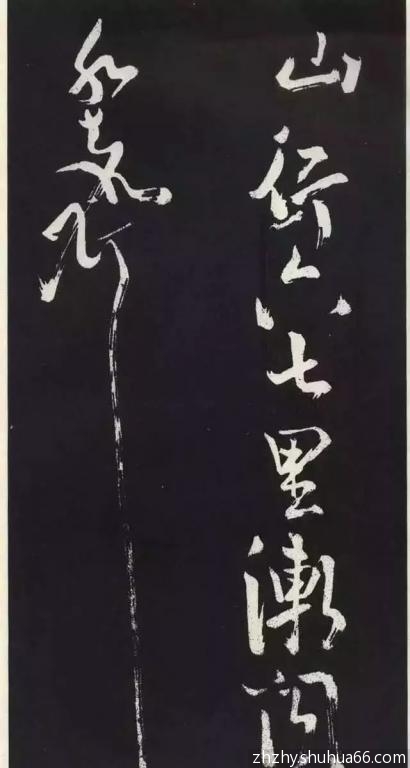 山行六七里漸聞
水聲
zhzhyshuhua66.com